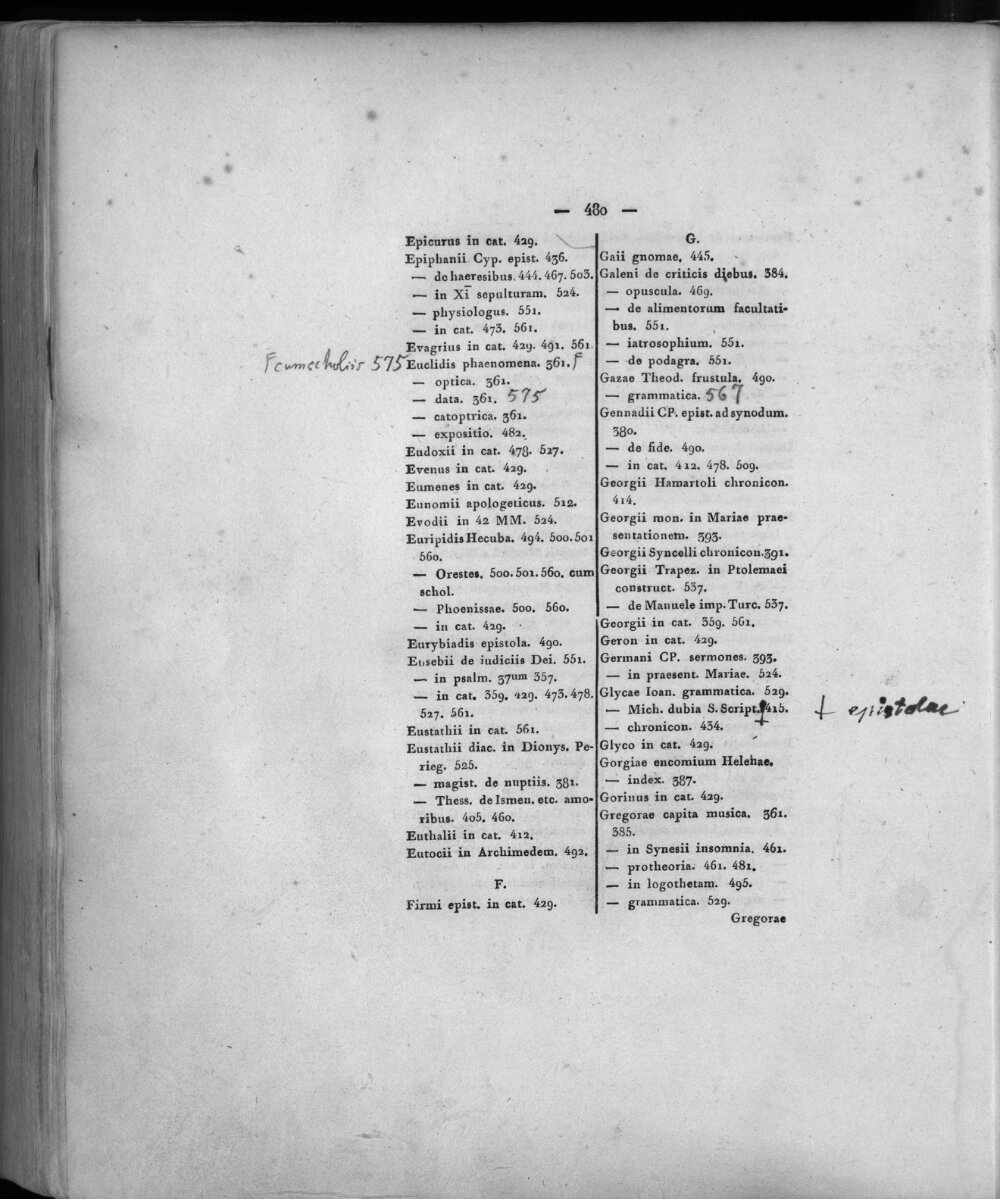 — 480 —
Epicurus in cat. 429.
Epiphanii Cyp. epist. 436.
— de haeresibus. 444. 467. 503.
— in XI sepulturam. 524.
— physiologus. 551.
— in cat. 473. 561.
Evagrius in cat. 429. 491. 561
Γ cum scholiis 575
Euclidis phaenomena. 361. Γ
— optica. 361.
— data. 361. 575
— catoptrica. 361.
— expositio. 482.
Eudoxii in cat. 478. 527.
Evenus in cat. 429.
Eumenes in cat. 429.
Eunomii apologeticus. 512.
Evodii in 42 MM. 524.
Euripidis Hecuba. 494. 500. 501
560.
— Orestes. 500. 501. 560. cum
schol.
— Phoenissae. 500. 560.
— in cat. 429.
Eurybiadis epistola. 490.
Eusebii de iudiciis Dei. 551.
— in psalm. 37um 357.
— in cat. 359. 429. 473. 478.
527. 561.
Eustathii in cat. 561.
Eustathii diac. in Dionys. Pe-
rieg. 525.
— magist. de nuptiis. 381.
— Thess. de Ismen. etc. amo-
ribus. 405. 460.
Euthalii in cat. 412.
Eutocii in Archimedem. 492.
F.
Firmi epist. in cat. 429.
G.
Gaii gnomae. 445.
Galeni de criticis diebus. 384.
— opuscula. 469.
— de alimentorum facultati-
bus. 551.
— iatrosophium. 551.
— de podagra. 551.
Gazae Theod. frustula. 490.
— grammatica. 567
Gennadii CP. epist. ad synodum.
380.
— de fide. 490.
— in cat. 412. 478. 509.
Georgii Hamartoli chronicon.
414.
Georgii mon. in Mariae prae-
sentationem. 393.
Georgii Syncelli chronicon. 391.
Georgii Trapez. in Ptolemaei
construct. 537.
— de Manuele imp. Turc. 537.
Georgii in cat. 359. 561.
Geron in cat. 429.
Germani CP. sermones. 393.
— in praesent. Mariae. 524.
Glycae Ioan. grammatica. 529.
— Mich. dubia S. Script. 415.
+ epistolae
— chronicon. 434.
Glyco in cat. 429.
Gorgiae encomium Helenae.
— index. 387.
Gorinus in cat. 429.
Gregorae capita musica. 361.
385.
— in Synesii insomnia. 461.
— protheoria. 461. 481.
— in logothetam. 495.
— grammatica. 529.
Gregorae